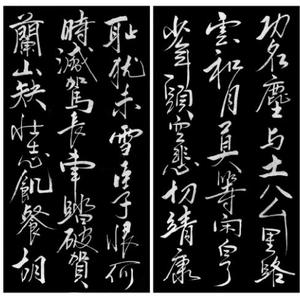 功名塵与土八千里路
雲和月莫等閑白了
少年頭空悲切靖康
恥犹未雪臣子恨何
時滅駕長車踏破賀
蘭山缺壯志飢餐胡